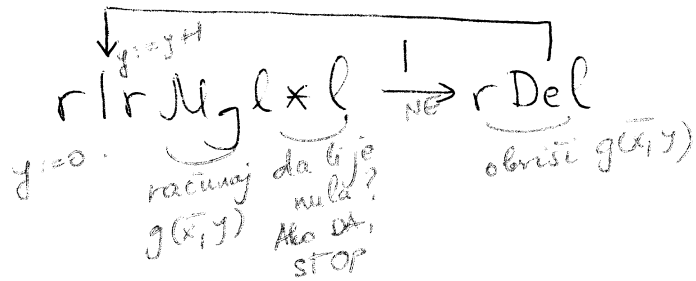 y:=y+1
r | r M_g l * l —| NE→ r Del
y:=0.
računaj g(x̄, y)
da li je nula? Ako DA, STOP
obriši g(x̄, y)